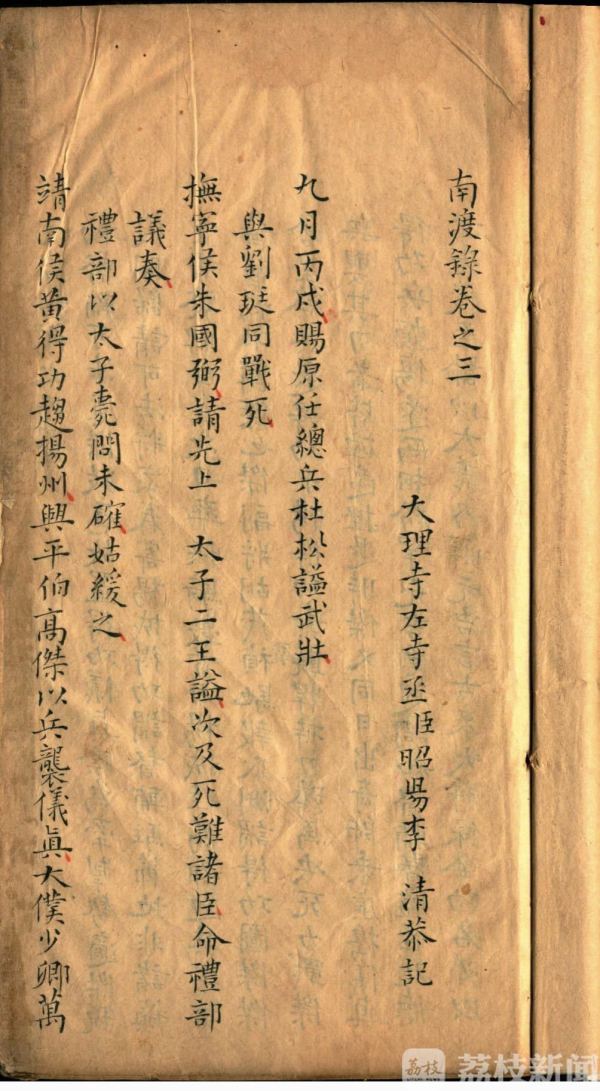 南渡錄卷之三
大理寺左寺丞臣昭陽李 清恭記
九月丙戌賜原任總兵杜松謚武壯
與劉珽同戰死
撫寧侯朱國弼請先上 太子二王謚次及死難諸臣命禮部
議奏
禮部以太子薨問未確姑緩之
靖南侯黃得功趨揚州興平伯高傑以兵襲儀真太僕少卿萬
荔枝 荔枝新闻